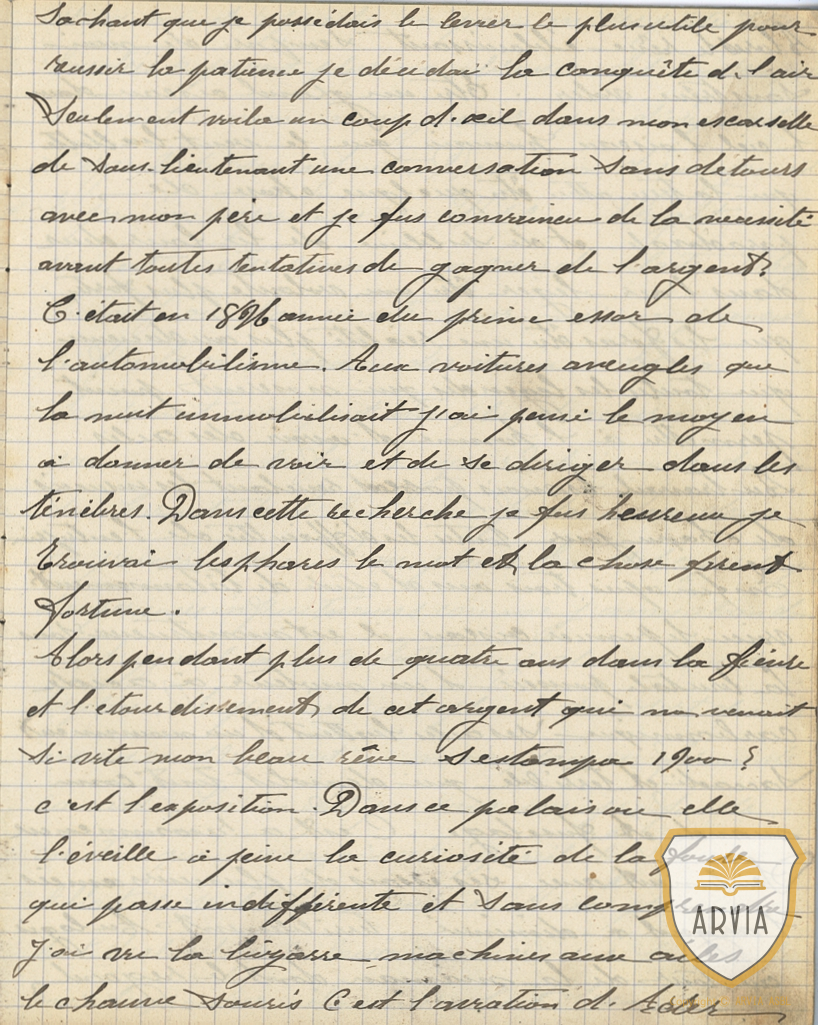 Sachant que je possédais le levier le plus utile pour
reussir la patience je décidai la conquête de l'air
Seulement voila un coup d'œil dans mon escarselle
de Sous-lieutenant une conversation Sans detours
avec mon père et je fus convaincu de la necessité
avant toutes tentatives de gagner de l'argent?
C'était en 1896 année du prime essor de
l'automobilisme. Aux voitures aveugles que
la nuit immobilisait j'ai pensé le moyen
a donner de voir et de se diriger dans les
ténèbres. Dans cette recherche je fus heureux je
trouvai les phares le mot et la chose firent
fortune.
Alors pendant plus de quatre ans dans la fièvre
et l'étourdissement de cet argent qui me venait
Si vite mon beau rêve s'estompa 1900?
c'est l'exposition. Dans ce palais ou elle
l'éveille a peine la curiosité de la foule
qui passe indifférente et sans comprendre
J'ai vu la bizarre machines aux ailes
le chauve souris C'est l'aviation d'Ader
ARVIA